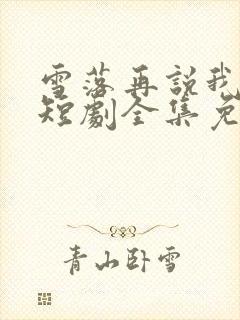 雪落再説我
短劇全集免
青山卧雪